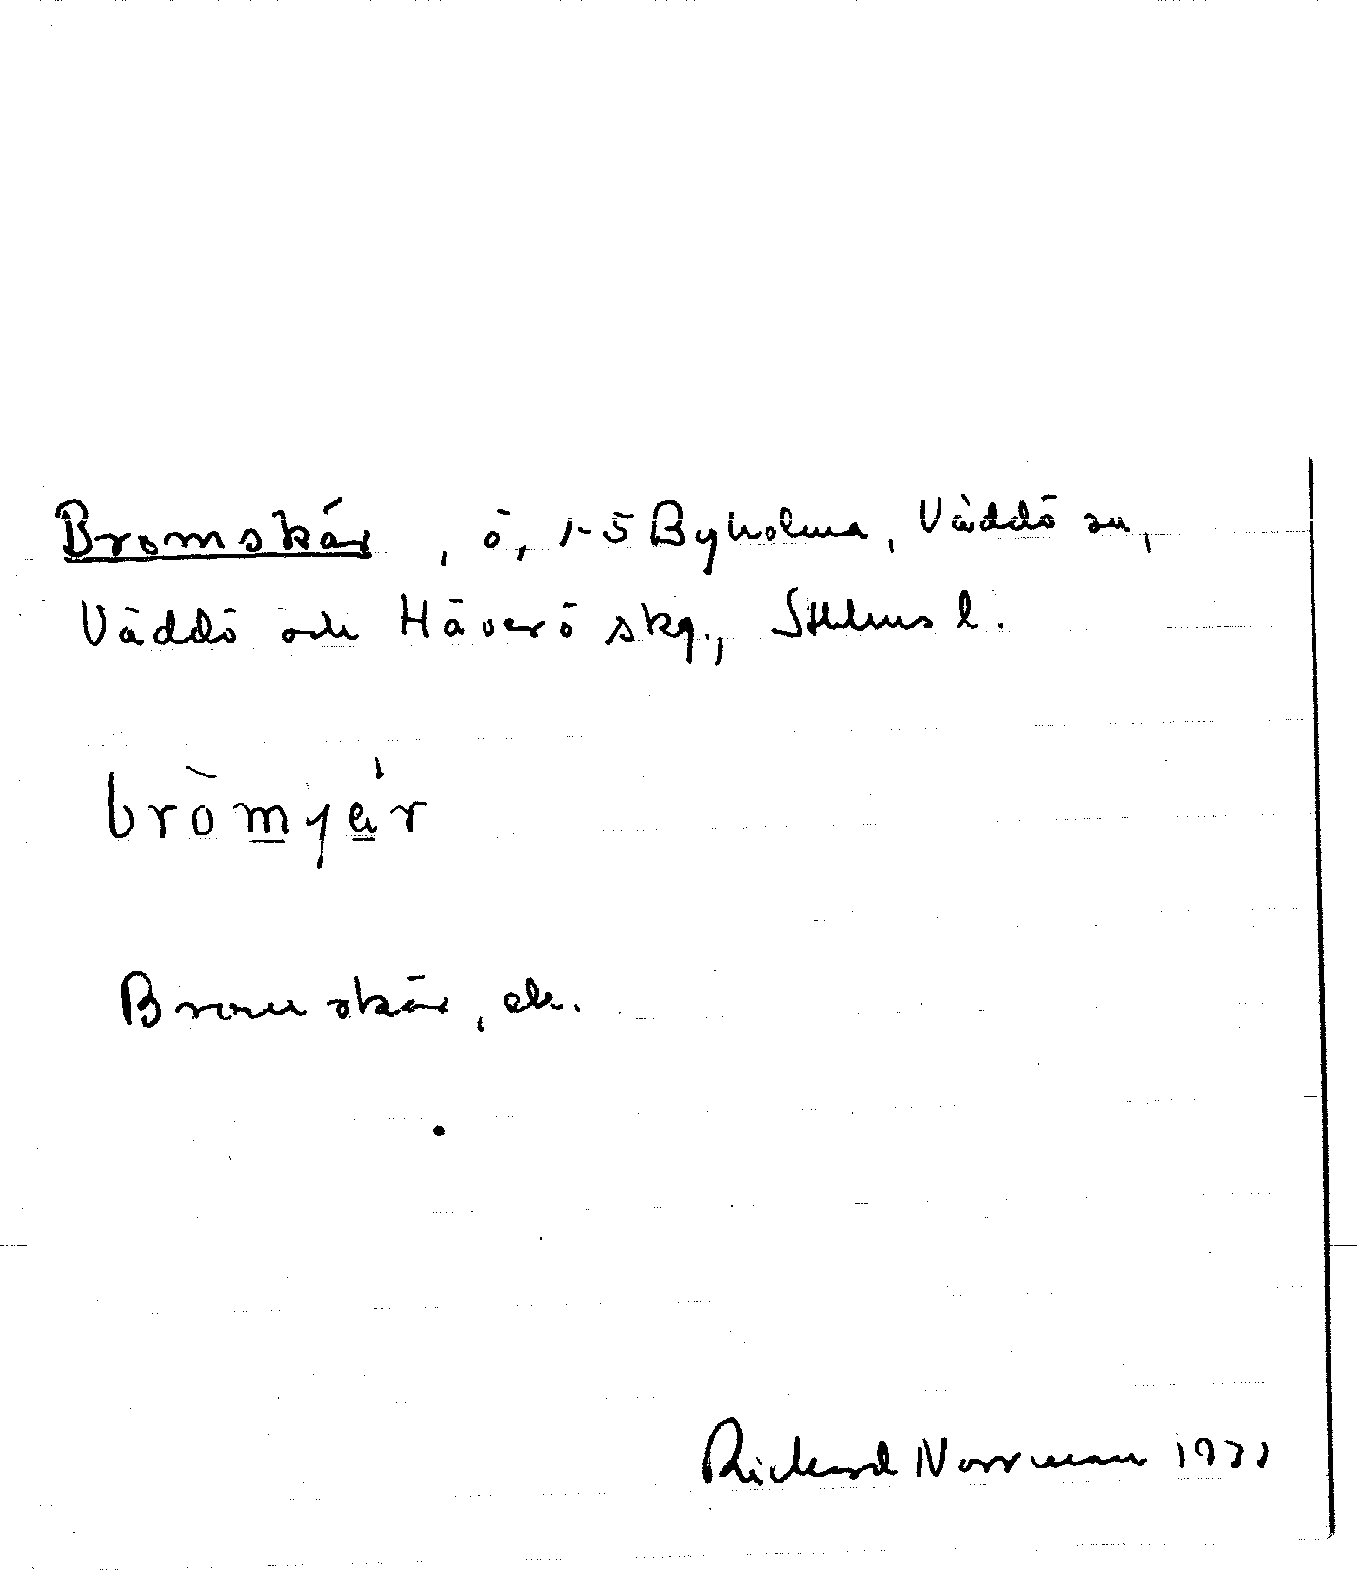 Bromskär, ö, 1-5 Byholma, Väddö sn,
Väddö och Häverö skg., Sthlms l.
bròmʃä́r
Bromskär, ek.
Rickard Norrman